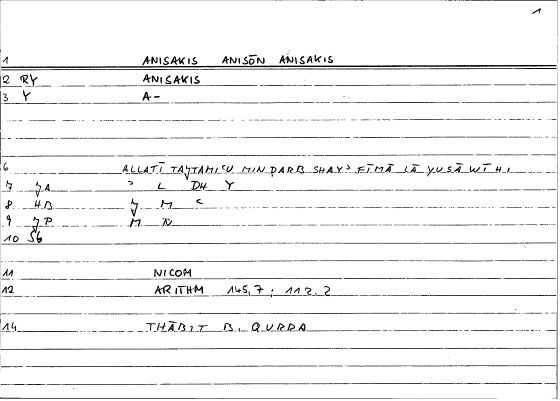 1
1 ANISAKIS ANISŌN ANISAKIS
2 RY ANISAKIS
3 Y A-
6 ALLATĪ TAJTAMIʿU MIN ḌARB SHAYʾ FĪMĀ LĀ YUSĀWĪHI
7 JA ʾ L DH Y
8 HB J M ʿ
9 JP M N
10 56
11 NICOM
12 ARITHM 145,7; 112.2
14 THĀBIT B. QURRA